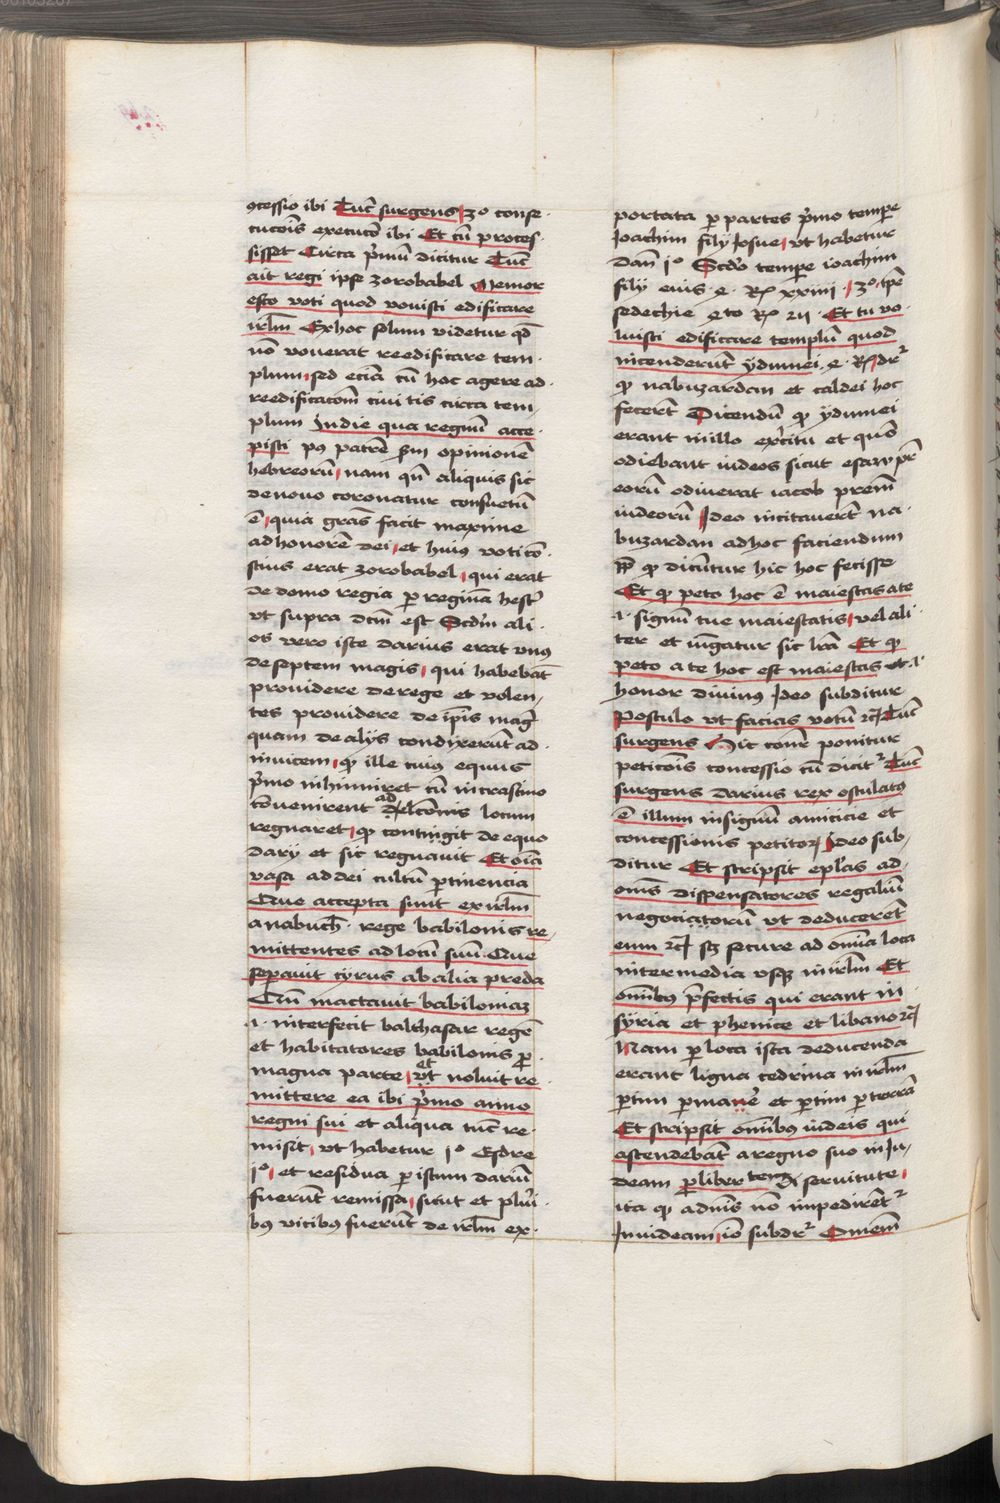 ꝯcessio ibi Tūc surgens 3º conse-
cucōis execucō ibi Et cū proces-
sisset Circa p̄mū dicitur Tūc
ait regi ipse zorobabel Memor
esto voti quod vouisti edificare
irlm̄ Ex hoc solum videtur qd̄
nō vouerat reedificare tem-
plum sed eciā cū hoc agere ad
reedificacōm ciui tis circa tem-
plum In die qua regnū acce-
pisti pꝰ patrē scdm̄ opinionē
hebreorū nam qn̄ aliquis sic
de nouo coronatur consuetū
ē quia grās facit maxime
ad honorē dei et huiꝰ voti cō-
scius erat zorobabel qui erat
de domo regia per reginā hest'
vt supra dcm̄ est Scdm̄ ali-
os vero iste darius erat vnꝰ
de septem magis qui habebāt
prouidere de rege et volen-
tes prouidere de ip̄is mag'
quam de alijs condixerūt ad-
inuicem ꝙ ille cuiꝰ equus
p̄mo inhinniret cū in crastino
conuenirent ad elcōnis locum
regnaret ꝙ contingit de equo
darij et sic regnauit Et oīa
vasa ad dei cultū ꝑtinencia
Que accepta sunt ex irlm̄
a nabuch rege babilonis re-
mittentes ad locū suū Que
seperauit cyrus ab alia preda
Cū mactauit babiloniaȝ
.i. interfecit balthasar regē
et habitatores babilonis ꝓ
magna parte et vt voluit re-
mittere ea ibi p̄mo anno
regni sui et aliqua tūc re-
misit vt habetur jº Esdre
jº et residua per istum dariū
fuerūt remissa sicut et pluri-
bꝰ vicibꝰ fuerūt de irlm̄ ex-
portata per partes p̄mo tempe
Joachim filij Josue vt habetur
Dan̄ jº Scdo tempe ioachim
filij eius 4 Rͫ xxiiij 3º tpe
sedechie 4to Rͫ Et tu vo-
luisti edificare templū quod
incenderūt ydumei 4 Rͫ dr̄
ꝙ nabuzardan et caldei hoc
fecerūt Dicendū ꝙ ydumei
erant in illo exercitu et quō
odiebant iudeos sicut esaw pr̄
eorū odiuerat iacob prem̄
iudeorū Ideo incitauerūt na-
buzardan ad hoc faciendum
ꝙ dicūtur hic hoc fecisse
Et ꝙ peto hoc ē maiestas a te
.i. signū tue maiestatis vel ali-
ter et iūgatur sic lrā Et ꝙ
peto a te hoc est maiestas et .i.
honor diuinꝰ Ideo subditur
Postulo vt facias votū ⁊c̄ Tūc
surgens Hic cōnr̄ ponitur
peticōis concessio cū dicit' Tūc
surgens darius rex osculatꝰ
ē illum in signū amicicie et
concessionis petitorꝝ Ideo sub-
ditur Et scripsit eplas ad
om̄s dispensatores regaliū
negociatorū vt deducerēt
eum ⁊c̄ sȝ secure ad om̄ia loca
intermedia vsqȝ in irlm̄ Et
om̄ibꝰ p̄fectis qui erant in
syria et phenice et libano ⁊c̄
Nam per loca ista deducenda
erant ligna cedrina in irlm̄
ꝑtim per mare et ꝑtim per terrā
Et scripsit om̄ibꝰ iudeis qui
ascendebāt a regno suo in Ju-
deam ꝓ libertem seruitute
ita ꝙ a dn̄is nō impedirēt'
In iudeam iō subdr̄ Omem̄